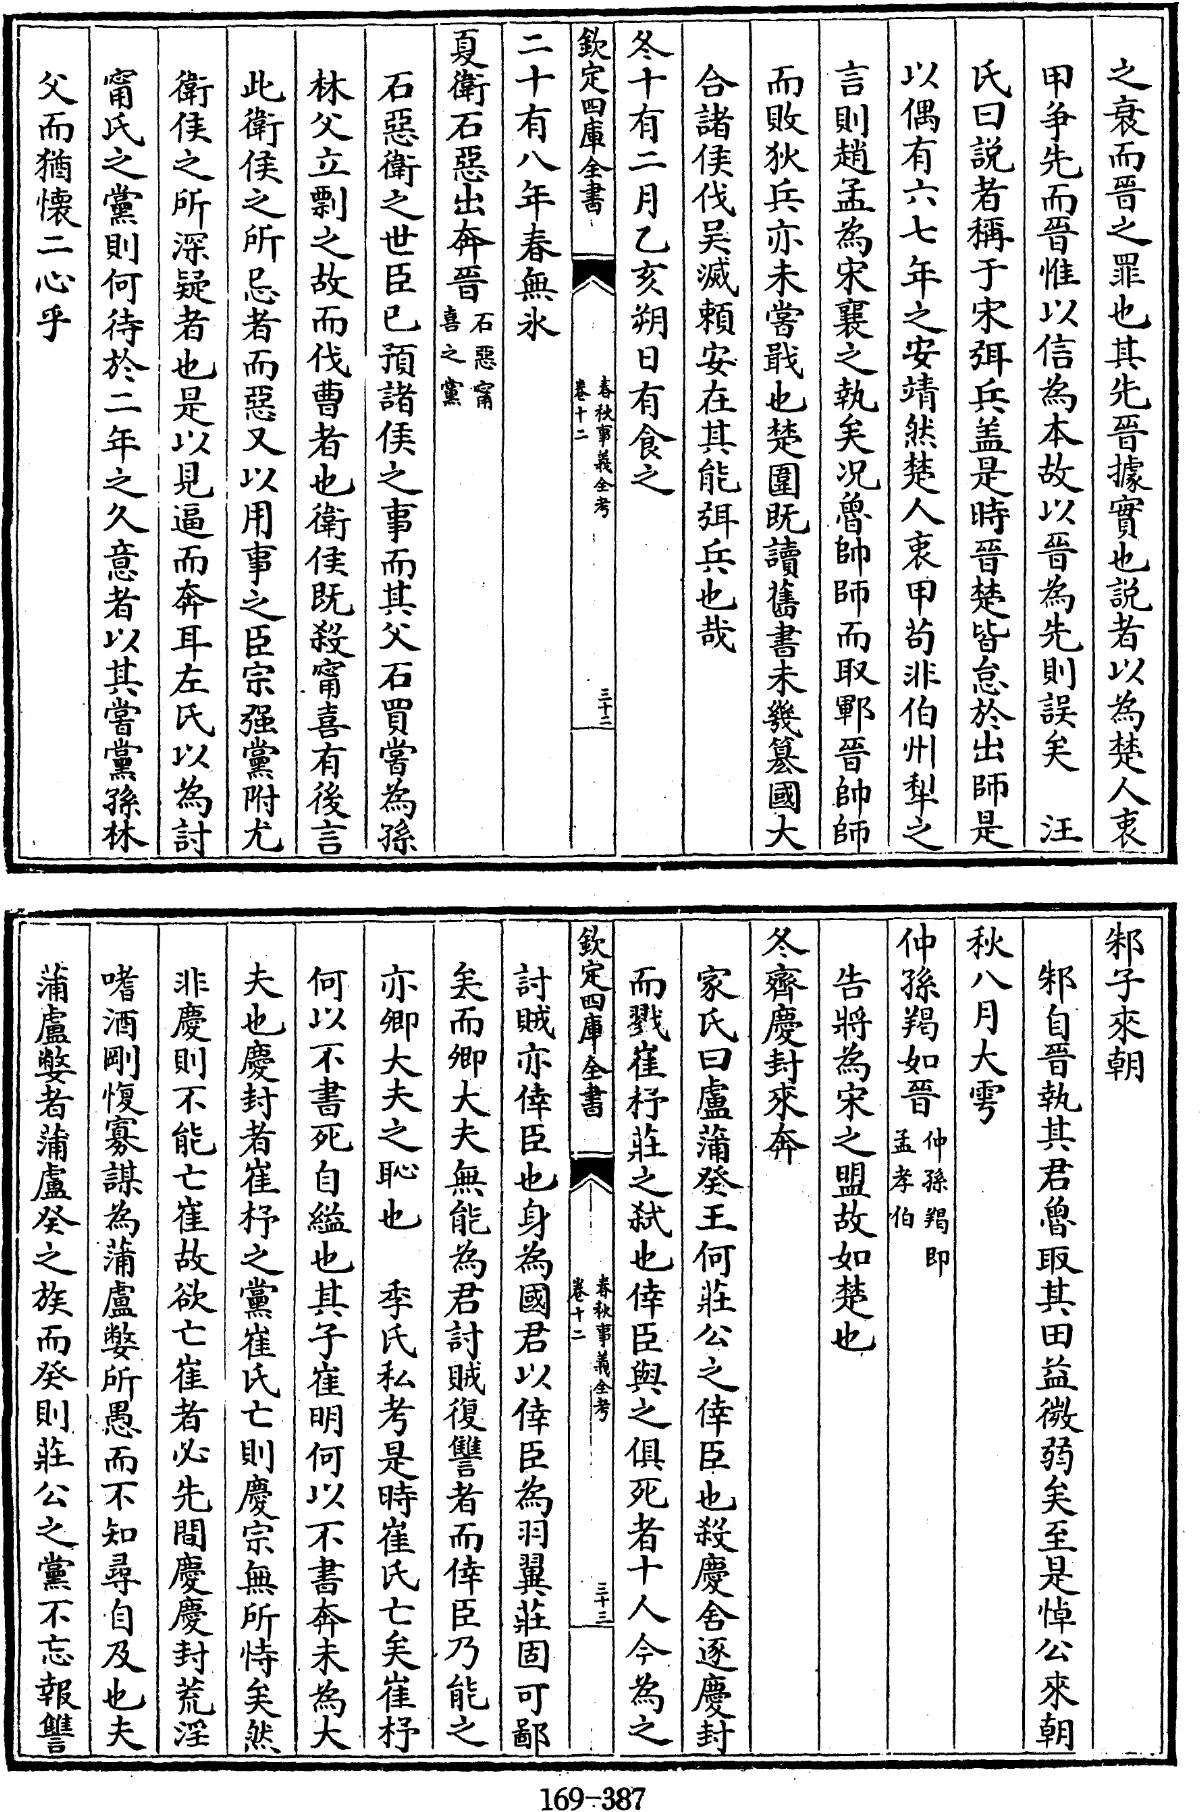 之衰而晉之罪也其先晉據實也説者以為楚人衷
甲争先而晉惟以信為本故以晉為先則誤矣　汪
氏曰説者稱于宋弭兵盖是時晉楚皆怠於出師是
以偶有六七年之安靖然楚人衷甲苟非伯州犁之
言則趙孟為宋襄之執矣况魯帥師而取鄆晉帥師
而敗狄兵亦未嘗戢也楚圍既讀舊書未幾簒國大
合諸侯伐吴滅賴安在其能弭兵也哉
冬十有二月乙亥朔日有食之
欽定四庫全書
春秋事義全考
卷十二
三十二
二十有八年春無氷
夏衛石惡出奔晉石惡甯
喜之黨
石惡衛之世臣已預諸侯之事而其父石買嘗為孫
林父立剽之故而伐曹者也衛侯既殺甯喜有後言
此衛侯之所忌者而惡又以用事之臣宗强黨附尤
衛侯之所深疑者也是以見逼而奔耳左氏以為討
甯氏之黨則何待於二年之久意者以其嘗黨孫林
父而猶懷二心乎
邾子來朝
邾自晉執其君魯取其田益微弱矣至是悼公來朝
秋八月大雩
仲孫羯如晉仲孫羯即
孟孝伯
告將為宋之盟故如楚也
冬齊慶封來奔
家氏曰盧蒲癸王何莊公之倖臣也殺慶舍逐慶封
而戮崔杼莊之弑也倖臣與之俱死者十人今為之
欽定四庫全書
春秋事義全考
卷十二
三十三
討賊亦倖臣也身為國君以倖臣為羽翼莊固可鄙
矣而卿大夫無能為君討賊復讐者而倖臣乃能之
亦卿大夫之恥也　季氏私考是時崔氏亡矣崔杼
何以不書死自縊也其子崔明何以不書奔未為大
夫也慶封者崔杼之黨崔氏亡則慶宗無所恃矣然
非慶則不能亡崔故欲亡崔者必先間慶慶封荒淫
嗜酒剛愎寡謀為蒲盧嫳所愚而不知尋自及也夫
蒲盧嫳者蒲盧癸之族而癸則莊公之黨不忘報讐
169-387